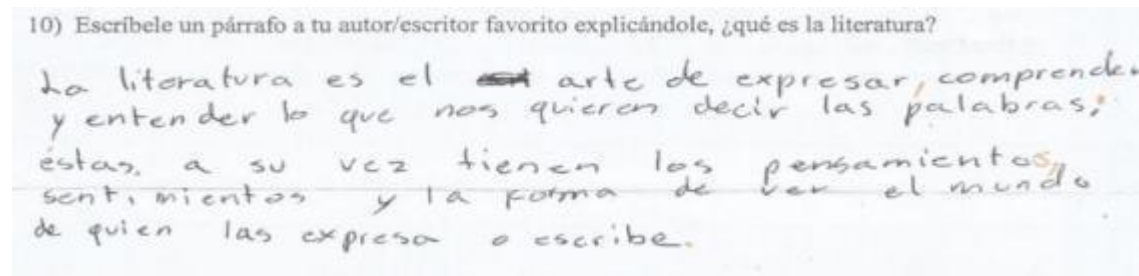 10) Escríbele un párrafo a tu autor/escritor favorito explicándole, ¿qué es la literatura?
La literatura es el arte de expresar, comprender
y entender lo que nos quieren decir las palabras;
éstas, a su vez tienen los pensamientos,
sentimientos y la forma de ver el mundo
de quien las expresa o escribe.